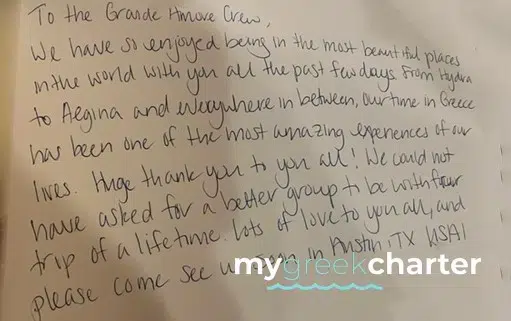 To the Grande Amore Crew,
We have so enjoyed being in the most beautiful places
in the world with you all the past few days. From Hydra
to Aegina and everywhere in between, our time in Greece
has been one of the most amazing experiences of our
lives. Huge thank you to you all! We could not
have asked for a better group to be with for our
trip of a lifetime. Lots of love to you all, and
please come see us soon in Austin, TX USA!
mygreekcharter